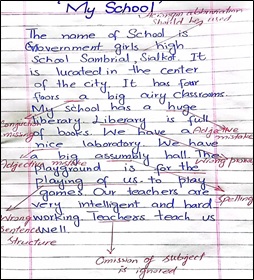 "My School"
abbreviation
should be used
The name of School is
Government girls high
School Sambrial, Sialkot. It
is lucated in the center
of the city. It has four
floors & big airy classrooms.
My school has a huge
liberary. Liberary is full
of books. We have a
nice laboratory. We have
a big assumbly hall. The
playground is for the
playing of us to play
games. Our teachers are
very intelligent and hard
working. Teachers teach us
well.
missing
Adjective
mistake
Adjective mistake
Wrong
Spelling
Wrong
Sentence
Structure
Omission of subject
is ignored